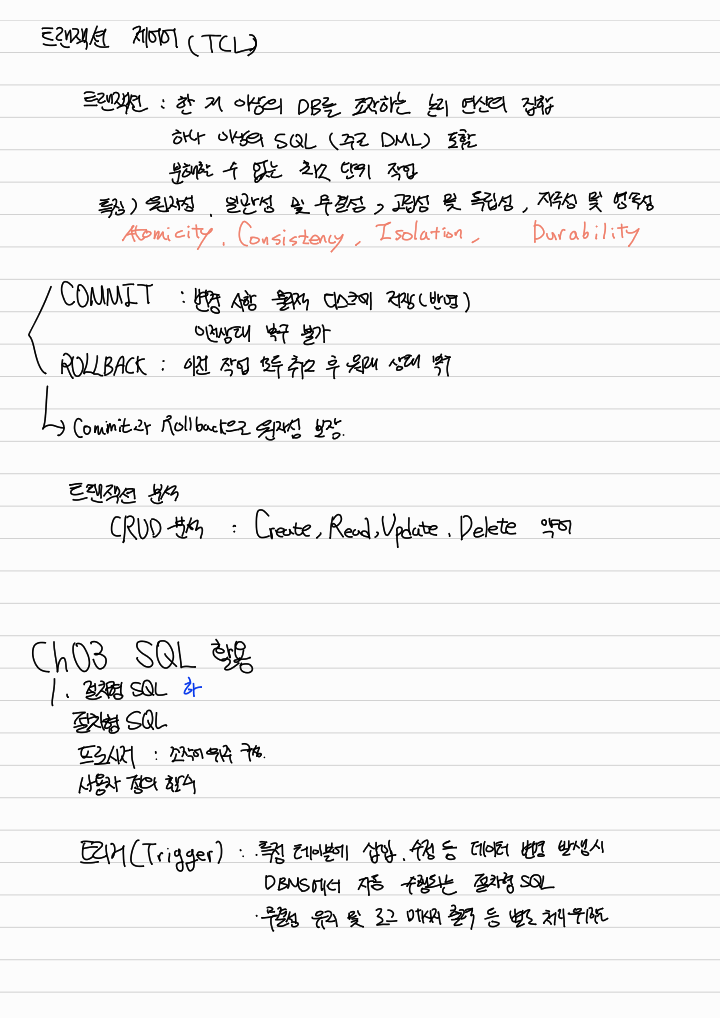 트랜잭션 제어어 (TCL)
트랜잭션 : 한 개 이상의 DB를 조작하는 논리 연산의 집합
하나 이상의 SQL (주로 DML) 포함
분해할 수 없는 최소 단위 작업
특징) 원자성, 일관성 및 무결성, 고립성 및 독립성, 지속성 및 영속성
Atomicity, Consistency, Isolation, Durability
COMMIT : 변경 사항 물리적 디스크에 저장(반영)
이전상태 복구 불가
ROLLBACK : 이전 작업 모두 취소 후 원래 상태 복구
↳ Commit과 Rollback으로 원자성 보장.
트랜잭션 분석
CRUD 분석 : Create, Read, Update, Delete 약어
Ch03 SQL 활용
1. 절차형 SQL 하
절차형 SQL
프로시저 : 조작어 위주 구성.
사용자 정의 함수
트리거(Trigger) : · 특정 테이블에 삽입, 수정 등 데이터 변경 발생시
DBMS에서 자동 수행되는 절차형 SQL
· 무결성 유지 및 로그 메시지 출력 등 별도 처리